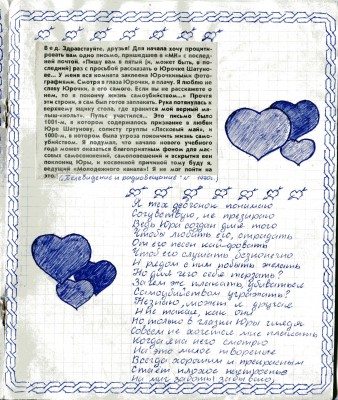 Вед. Здравствуйте, друзья! Для начала хочу процити-
ровать вам одно письмо, пришедшее в «МК» с послед-
ней почтой. «Пишу вам в пятый (и, может быть, в по-
следний) раз с просьбой рассказать о Юрочке Шатуно-
ве... У меня вся комната заклеена Юрочкиными фото-
графиями. Смотрю в глаза Юрочки, и плачу. Я люблю не
славу Юрочки, а его самого. Если вы не расскажете о
нем, то я покончу жизнь самоубийством...» Прочтя
эти строки, я сам был готов заплакать. Рука потянулась к
верхнему ящику стола, где хранится мой верный ма-
лыш-«кольт». Пульс участился... Это письмо было
1001-м, в котором содержалось признание в любви
Юре Шатунову, солисту группы «Ласковый май», и
1000-м, в котором была угроза покончить жизнь само-
убийством. Я подумал, что начало нового учебного
года может оказаться благоприятным фоном для мас-
совых самосожжений, самоповешений и вскрытия вен
поклонниц Юры, и косвенной причиной тому буду я,
ведущий «Молодежного канала»! Я не мог пойти на
это.
«Телевидение и радиовещание»
Я тех девчонок понимаю
Сочувствую, не презираю
Ведь Юра создан для того
Чтобы любить его,
От его песен кайфовать
Чтоб его слушать бесконечно
И рядом с ним побыть желать
Но для чего себя терзать?
Зачем же плакать, убиваться
Самоубийством угрожать?
Не знаю, может я другая
И не такая, как они
Но только в глазки Юры глядя
Совсем не хочется мне плакать
Когда я на него смотрю
На это милое творение
Всегда хорошим и прекрасным
Стаёт плохое настроение
На миг заботы забываю,